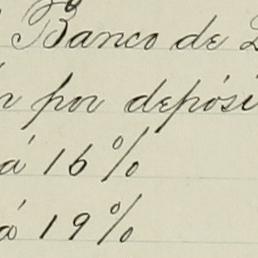 Banco de
por depósi
á 16%
á 19%